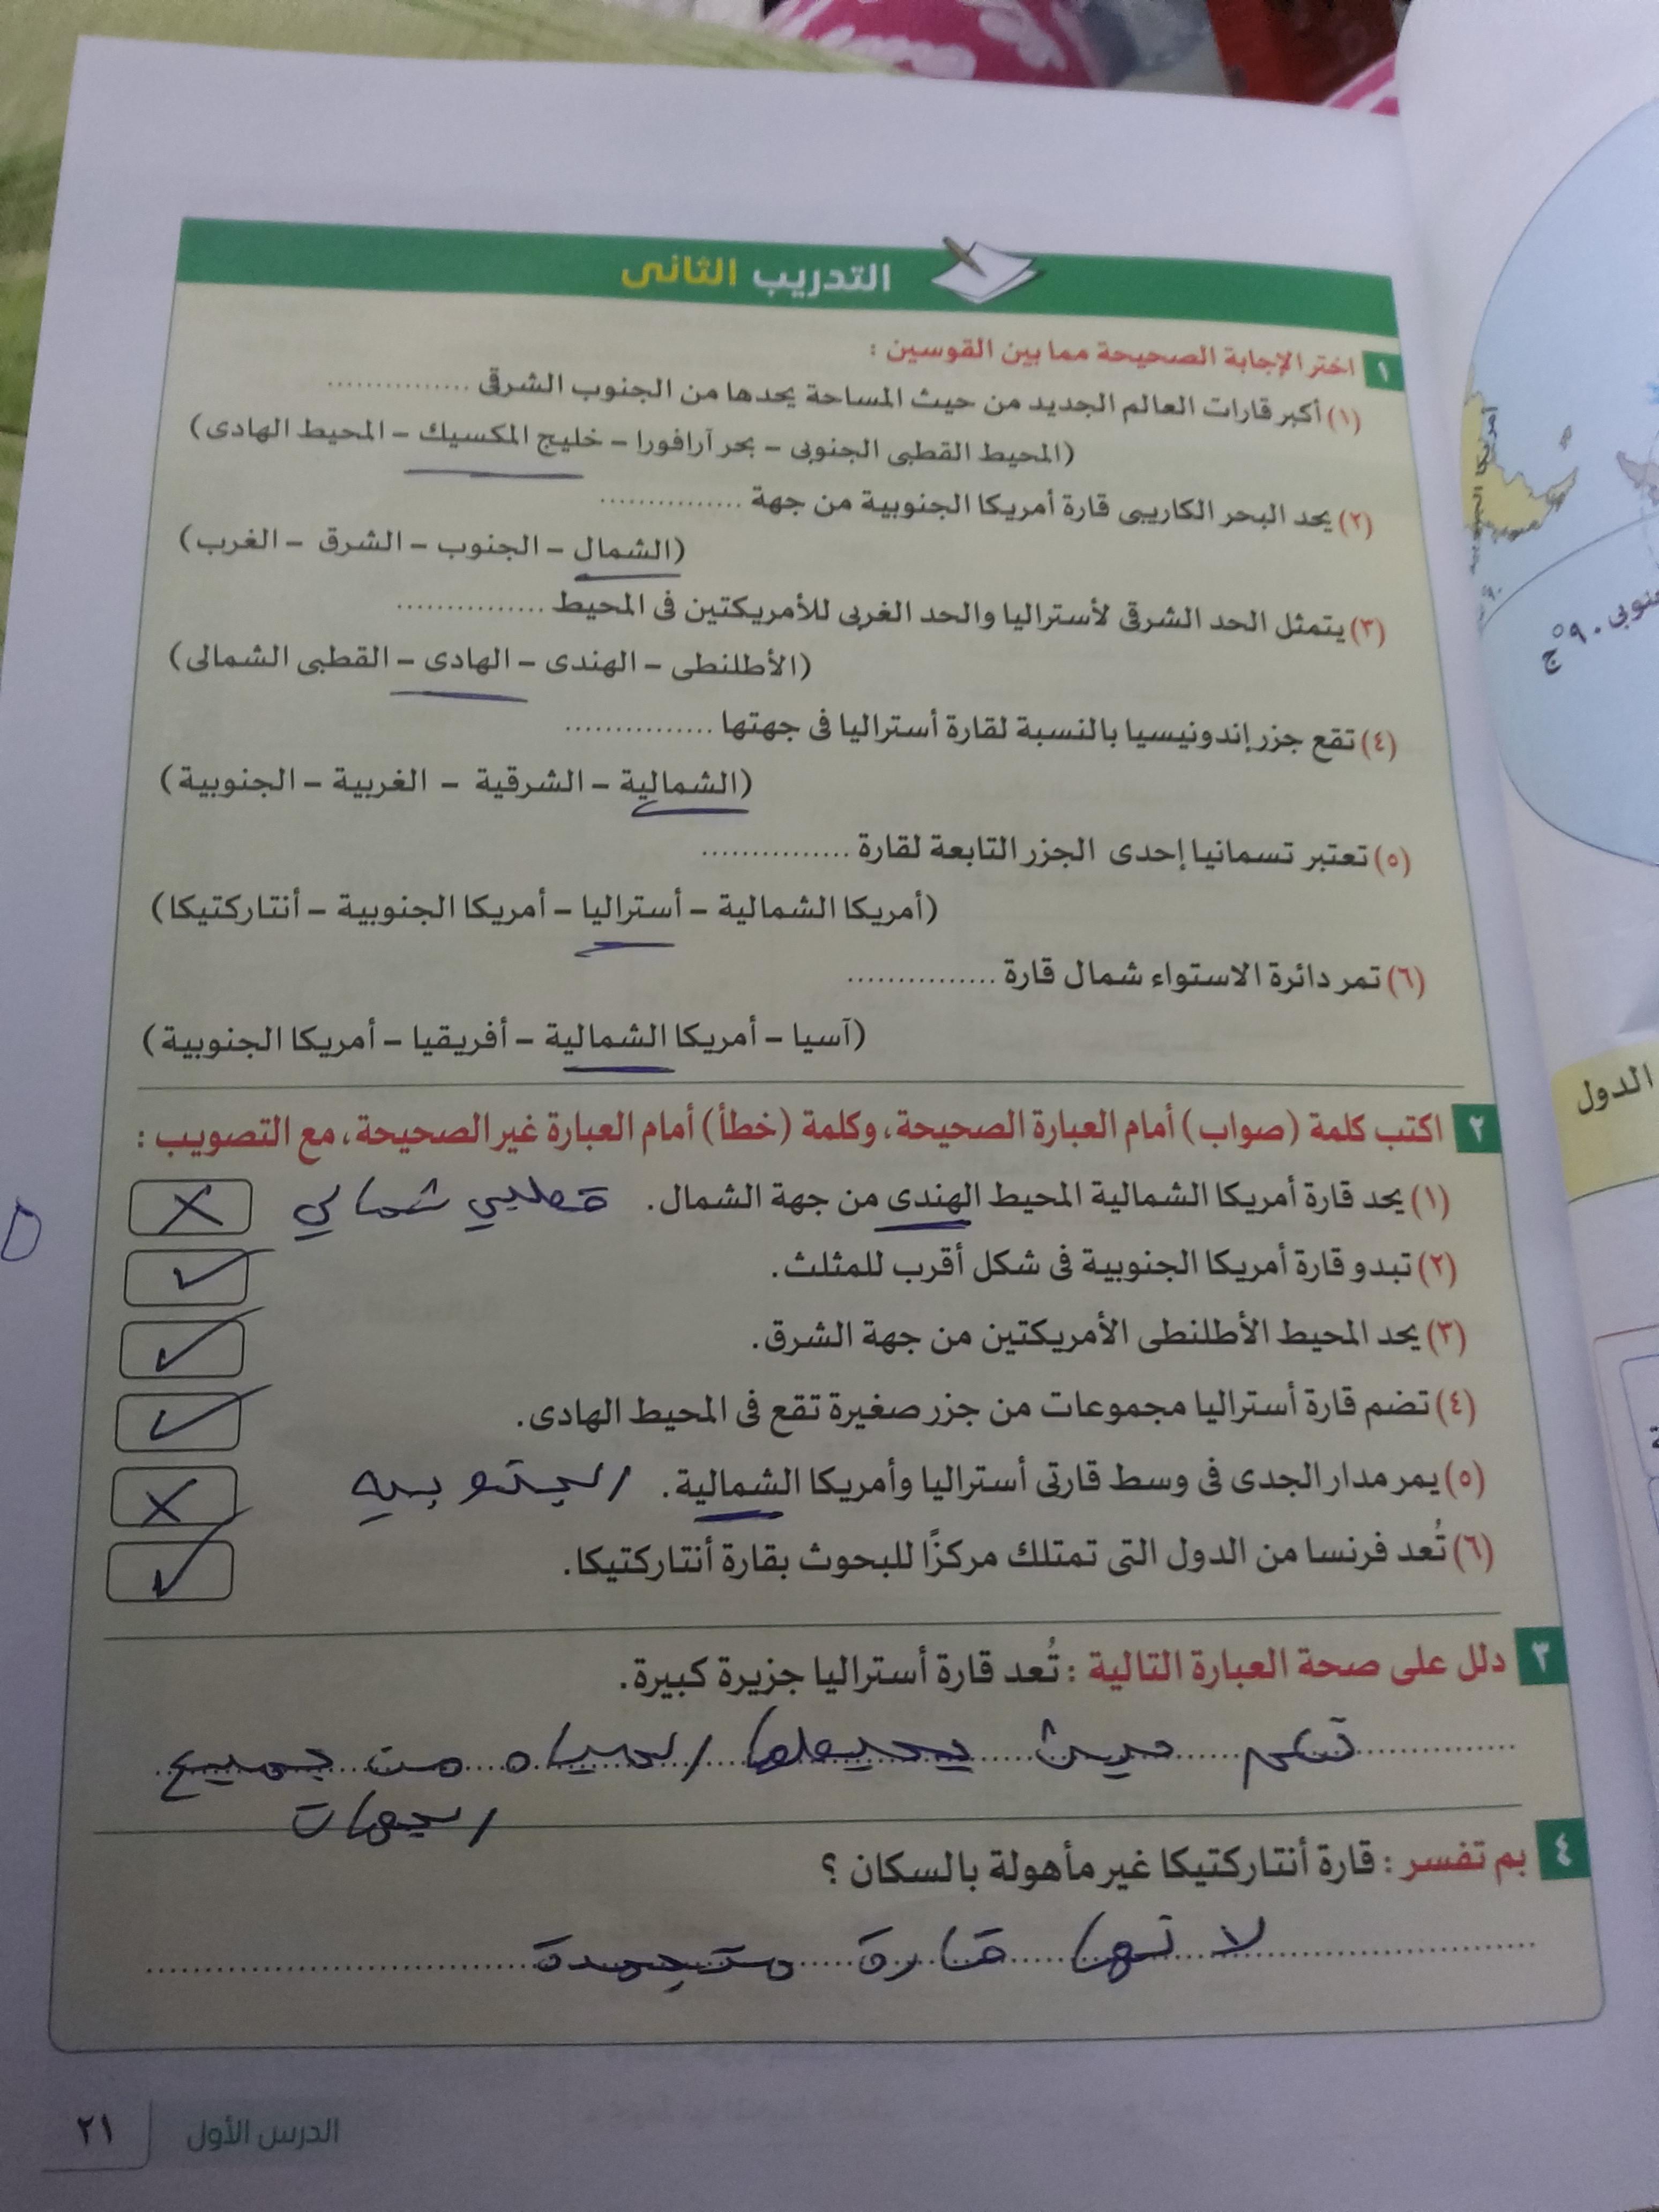 التدريب الثانى
١ اختر الإجابة الصحيحة مما بين القوسين :
(١) أكبر قارات العالم الجديد من حيث المساحة يحدها من الجنوب الشرقى ...............
(المحيط القطبى الجنوبى – بحر آرافورا – خليج المكسيك – المحيط الهادى)
(٢) يحد البحر الكاريبى قارة أمريكا الجنوبية من جهة ...............
(الشمال – الجنوب – الشرق – الغرب)
(٣) يتمثل الحد الشرقى لأستراليا والحد الغربى للأمريكتين فى المحيط ...............
(الأطلنطى – الهندى – الهادى – القطبى الشمالى)
(٤) تقع جزر إندونيسيا بالنسبة لقارة أستراليا فى جهتها ...............
(الشمالية – الشرقية – الغربية – الجنوبية)
(٥) تعتبر تسمانيا إحدى الجزر التابعة لقارة ...............
(أمريكا الشمالية – أستراليا – أمريكا الجنوبية – أنتاركتيكا)
(٦) تمر دائرة الاستواء شمال قارة ...............
(آسيا – أمريكا الشمالية – أفريقيا – أمريكا الجنوبية)
٢ اكتب كلمة (صواب) أمام العبارة الصحيحة، وكلمة (خطأ) أمام العبارة غير الصحيحة، مع التصويب :
(١) يحد قارة أمريكا الشمالية المحيط الهندى من جهة الشمال. قطبي شمالي
(٢) تبدو قارة أمريكا الجنوبية فى شكل أقرب للمثلث.
(٣) يحد المحيط الأطلنطى الأمريكتين من جهة الشرق.
(٤) تضم قارة أستراليا مجموعات من جزر صغيرة تقع فى المحيط الهادى.
(٥) يمر مدار الجدى فى وسط قارتى أستراليا وأمريكا الشمالية. الجنوبيه
(٦) تُعد فرنسا من الدول التى تمتلك مركزًا للبحوث بقارة أنتاركتيكا.
٣ دلل على صحة العبارة التالية : تُعد قارة أستراليا جزيرة كبيرة.
حيث يحيطها المياه من جميع
الجهات
٤ بم تفسر : قارة أنتاركتيكا غير مأهولة بالسكان ؟
لا نها قارة متجمدة
الدرس الأول
٢١
أمريكا الجنوبية
٩٠°ج
الدول